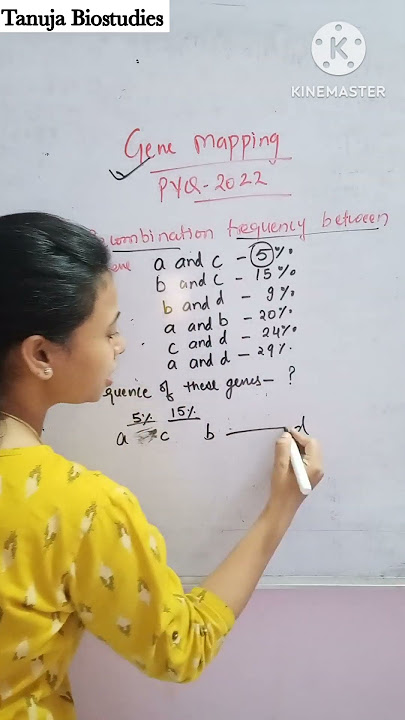 Tanuja Biostudies
KINEMASTER
Gene Mapping
PYQ-2022
combination frequency between
a and c - 5%
b and c - 15%
b and d - 9%
a and b - 20%
c and d - 24%
a and d - 29%
quence of these genes - ?
5% 15%
a c b d